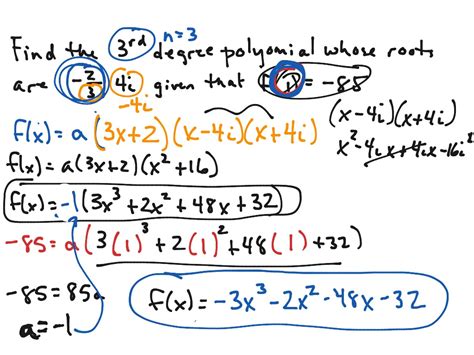 n=3
Find the 3rd degree polyomial whose roots
are -2/3, 4i given that f(1) = -85
-4i
f(x) = a(3x+2)(x-4i)(x+4i)
(x-4i)(x+4i)
x²-4ix+4ix-16i²
f(x) = a(3x+2)(x²+16)
f(x) = -1(3x³+2x²+48x+32)
-85 = a(3(1)³+2(1)²+48(1)+32)
-85 = 85a
a = -1
f(x) = -3x³-2x²-48x-32